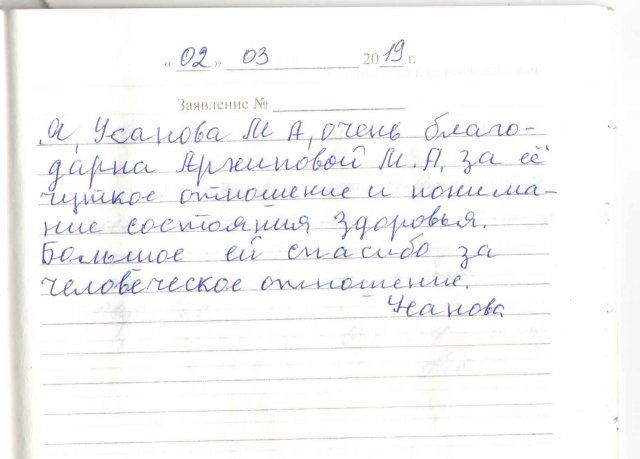 « 02 » 03 2019 г.
Заявление №
Я, Усанова М А, очень благо-
дарна Архиповой М.А, за её
чуткое отношение и понима-
ние состояния здоровья.
Большое ей спасибо за
человеческое отношение.
Усанова